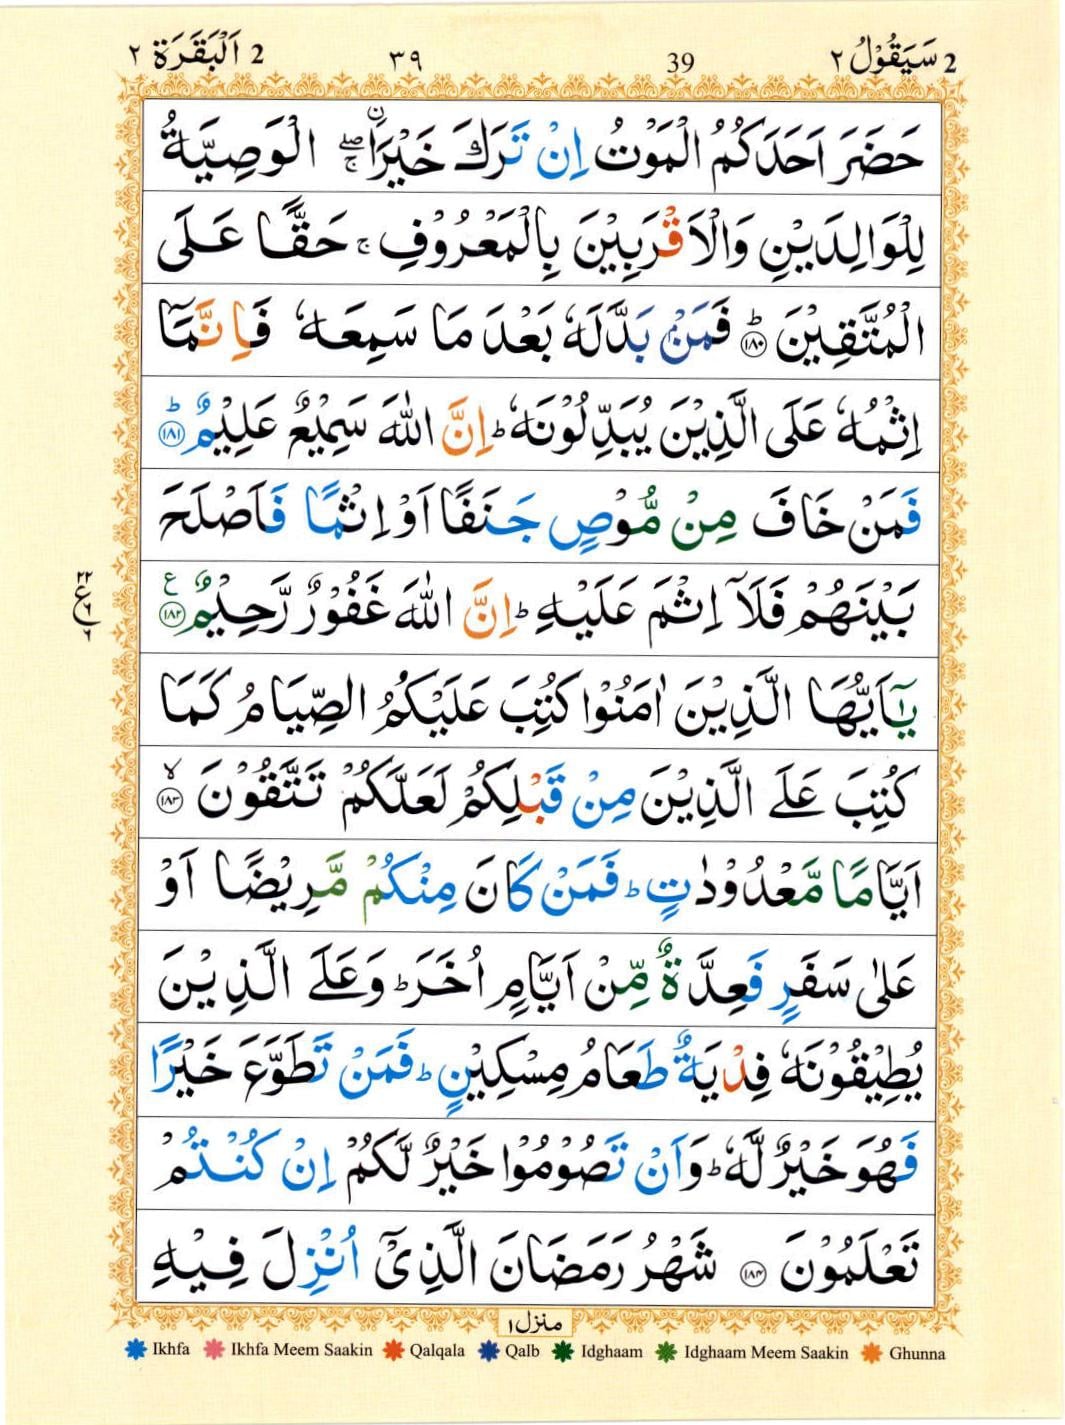 2 سَيَقُوْلُ ٢ 39 ٣٩ 2 اَلْبَقَرَة ٢
حَضَرَ اَحَدَكُمُ الْمَوْتُ اِنْ تَرَكَ خَيْرَاۨ ۖۚ الْوَصِيَّةُ
لِلْوَالِدَيْنِ وَالْاَقْرَبِيْنَ بِالْمَعْرُوْفِ ۚ حَقًّا عَلَى
الْمُتَّقِيْنَ ؕ ﴿۱۸۰﴾ فَمَنْۢ بَدَّلَهٗ بَعْدَ مَا سَمِعَهٗ فَاِنَّمَاۤ
اِثْمُهٗ عَلَى الَّذِيْنَ يُبَدِّلُوْنَهٗ ؕ اِنَّ اللّٰهَ سَمِيْعٌ عَلِيْمٌ ؕ ﴿۱۸۱﴾
فَمَنْ خَافَ مِنْ مُّوْصٍ جَنَفًا اَوْ اِثْمًا فَاَصْلَحَ
بَيْنَهُمْ فَلَاۤ اِثْمَ عَلَيْهِ ؕ اِنَّ اللّٰهَ غَفُوْرٌ رَّحِيْمٌ ﴿۱۸۲﴾ ع
يٰۤاَيُّهَا الَّذِيْنَ اٰمَنُوْا كُتِبَ عَلَيْكُمُ الصِّيَامُ كَمَا
كُتِبَ عَلَى الَّذِيْنَ مِنْ قَبْلِكُمْ لَعَلَّكُمْ تَتَّقُوْنَ ۙ ﴿۱۸۳﴾
اَيَّامًا مَّعْدُوْدٰتٍ ؕ فَمَنْ كَانَ مِنْكُمْ مَّرِيْضًا اَوْ
عَلٰى سَفَرٍ فَعِدَّةٌ مِّنْ اَيَّامٍ اُخَرَ ؕ وَعَلَى الَّذِيْنَ
يُطِيْقُوْنَهٗ فِدْيَةٌ طَعَامُ مِسْكِيْنٍ ؕ فَمَنْ تَطَوَّعَ خَيْرًا
فَهُوَ خَيْرٌ لَّهٗ ؕ وَاَنْ تَصُوْمُوْا خَيْرٌ لَّكُمْ اِنْ كُنْتُمْ
تَعْلَمُوْنَ ﴿۱۸۴﴾ شَهْرُ رَمَضَانَ الَّذِيْۤ اُنْزِلَ فِيْهِ
منزل ١
Ikhfa Ikhfa Meem Saakin Qalqala Qalb Idghaam Idghaam Meem Saakin Ghunna